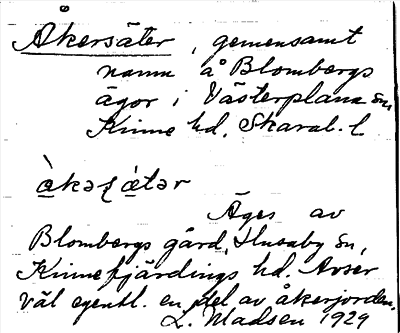 Åkersäter, gemensamt
namn å Blombergs
ägor i Västerplana sn,
Kinne hd, Skarab. l.
Äges av
Blombergs gård, Husaby sn,
Kinnefjärdings hd. Avser
väl egentl. en del av åkerjorden.
L. Madsen 1929